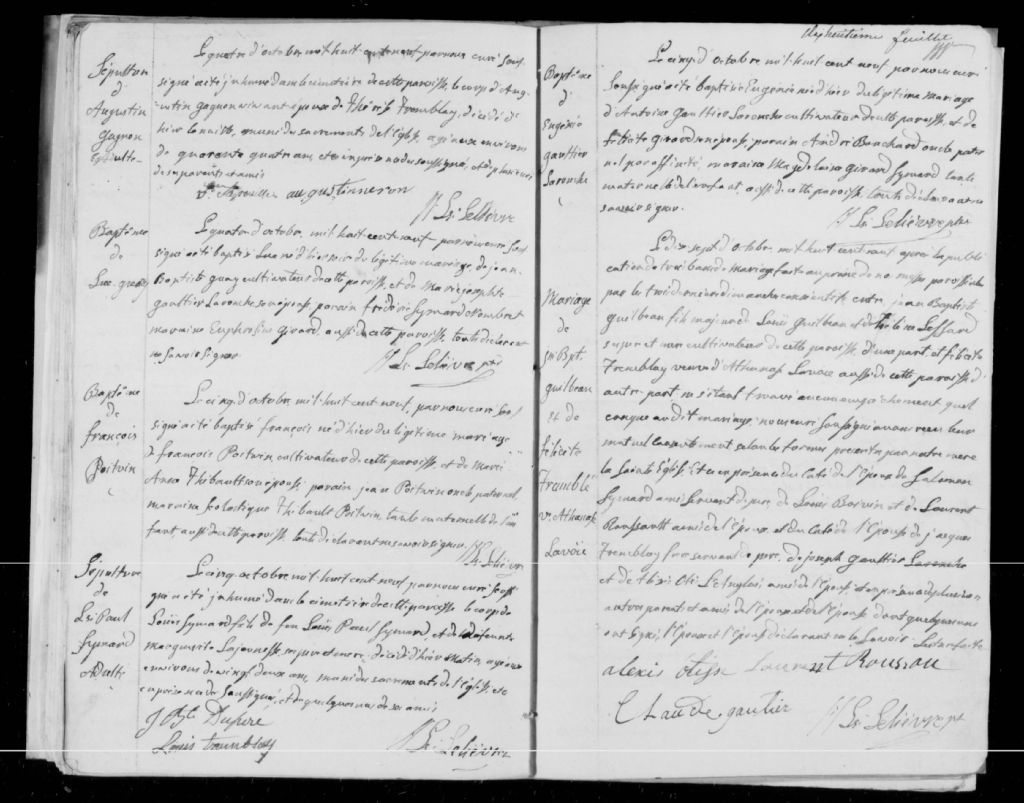 Sépulture
d'
Augustin
Gagnon
Adulte
Le quatre d'octobre mil huit cent neuf par nous curé sous
signé a été inhumé dans le cimetière de cette paroisse, le corps d'Aug
ustin Gagnon vivant époux de Thérèse Tremblay, décédé d'
hier muni des sacrements de l'Eglise, agé aux environs
de quarente quatre ans, et en présence du soussigné, et de plusieurs
de ses parents et amis
augustin neron
Frs Lelièvre
Baptême
de
Luc guay
Le quatre d'octobre, mil huit cent neuf par nous curé sous
signé a été baptisé Luc né d'hier soir du légitime mariage de jean
Baptiste guay cultivateur de cette paroisse, et de Marie josephte
gauttier Larouche son épouse, parain frédéric Symard
maraine Euphrosine Girard, aussi de cette paroisse tous déclarent
ne savoir signer
Frs Lelièvre ptre
Baptême
de
françois
Poitvin
Le cinq d'octobre mil huit cent neuf, par nous curé sous
signé a été baptisé françois né d'hier du légitime mariage
de francois Poitvin, cultivateur de cette paroisse, et de Marie
Anne Thibault son épouse; parain jean Poitvin oncle paternel,
maraine scolastique Thibault Poitvin, tante maternelle de l'en
fant, aussi de cette paroisse, tous déclarent ne savoir signer
Frs Lelièvre
Sépulture
de
Ls Paul
Symard
Adulte
Le cinq octobre mil huit cent neuf par nous curé sous
signé a été inhumé dans le cimetière de cette paroisse le corps de
Loüis Symard fils de feu Loüis Paul Symard, et de défunte
marguerite Lajeunesse ses pere et mere, décédé d'hier matin, agé aux
environs de vingt deux ans, muni des sacrements de l'Eglise et
en présence de soussignés, et de quelques uns de ses amis
J Bte Dufere
Louis trembley
Frs Lelièvre
dixhuitieme feuille
Baptême
d'
Eugénie
gauttier
Larouche
Le cinq d'octobre mil huit cent neuf par nous curé
soussigné a été baptisée Eugénie née d'hier du légitime Mariage
d'Antoine Gauttier Larouche cultivateur de cette paroisse, et de
félicité girard son épouse, parain André Bouchard oncle pater
nel par affinité, maraine Magdelaine Girard Symard tante
maternelle de l'enfant, aussi de cette paroisse tous déclarent ne
savoir signer.
Frs Lelièvre ptre
Mariage
de
jn Bpt.
guilbeau
et de
félicité
Tramblé
ve. Athanase
Lavoie
Le dix sept d'octobre mil huit cent neuf apres la publi
cation de trois bans de Mariage faite au prone de nos messes paroissiales
par les trois derniers dimanches consécutifs entre jean Baptiste
guilbeau fils majeur de Loüis Guilbeau et de Lessard
ses pere et mere cultivateurs de cette paroisse, d'une part, et félicité
Tremblay veuve d'Athanase Lavoie aussi de cette paroisse d'
autre part, ne s'étant trouvé aucun empêchement quel
conque au dit mariage, nous curé soussigné avons recu leur
mutuel consentement selon la forme prescrite par notre mere
la Sainte Eglise. Et ce en présence du coté de l'Epoux de Salomon
Symard ami servant de pere, de Loüis Boivin et de Laurent
Roussault amis de l'époux, et du coté de l'Epouse de jacques
Tremblay frere servant de pere, de joseph gauttier Larouche
et de Alexis Otis amis de l'Epouse, et en présence de plusieurs
autres parents et amis de l'Epoux et de l'Epouse dont quelques uns
ont signé; l'Epoux et l'Epouse déclarant ne le savoir. Lecture faite
alexis otise Laurent Roussau
Claude gautier
Frs Lelièvre ptr